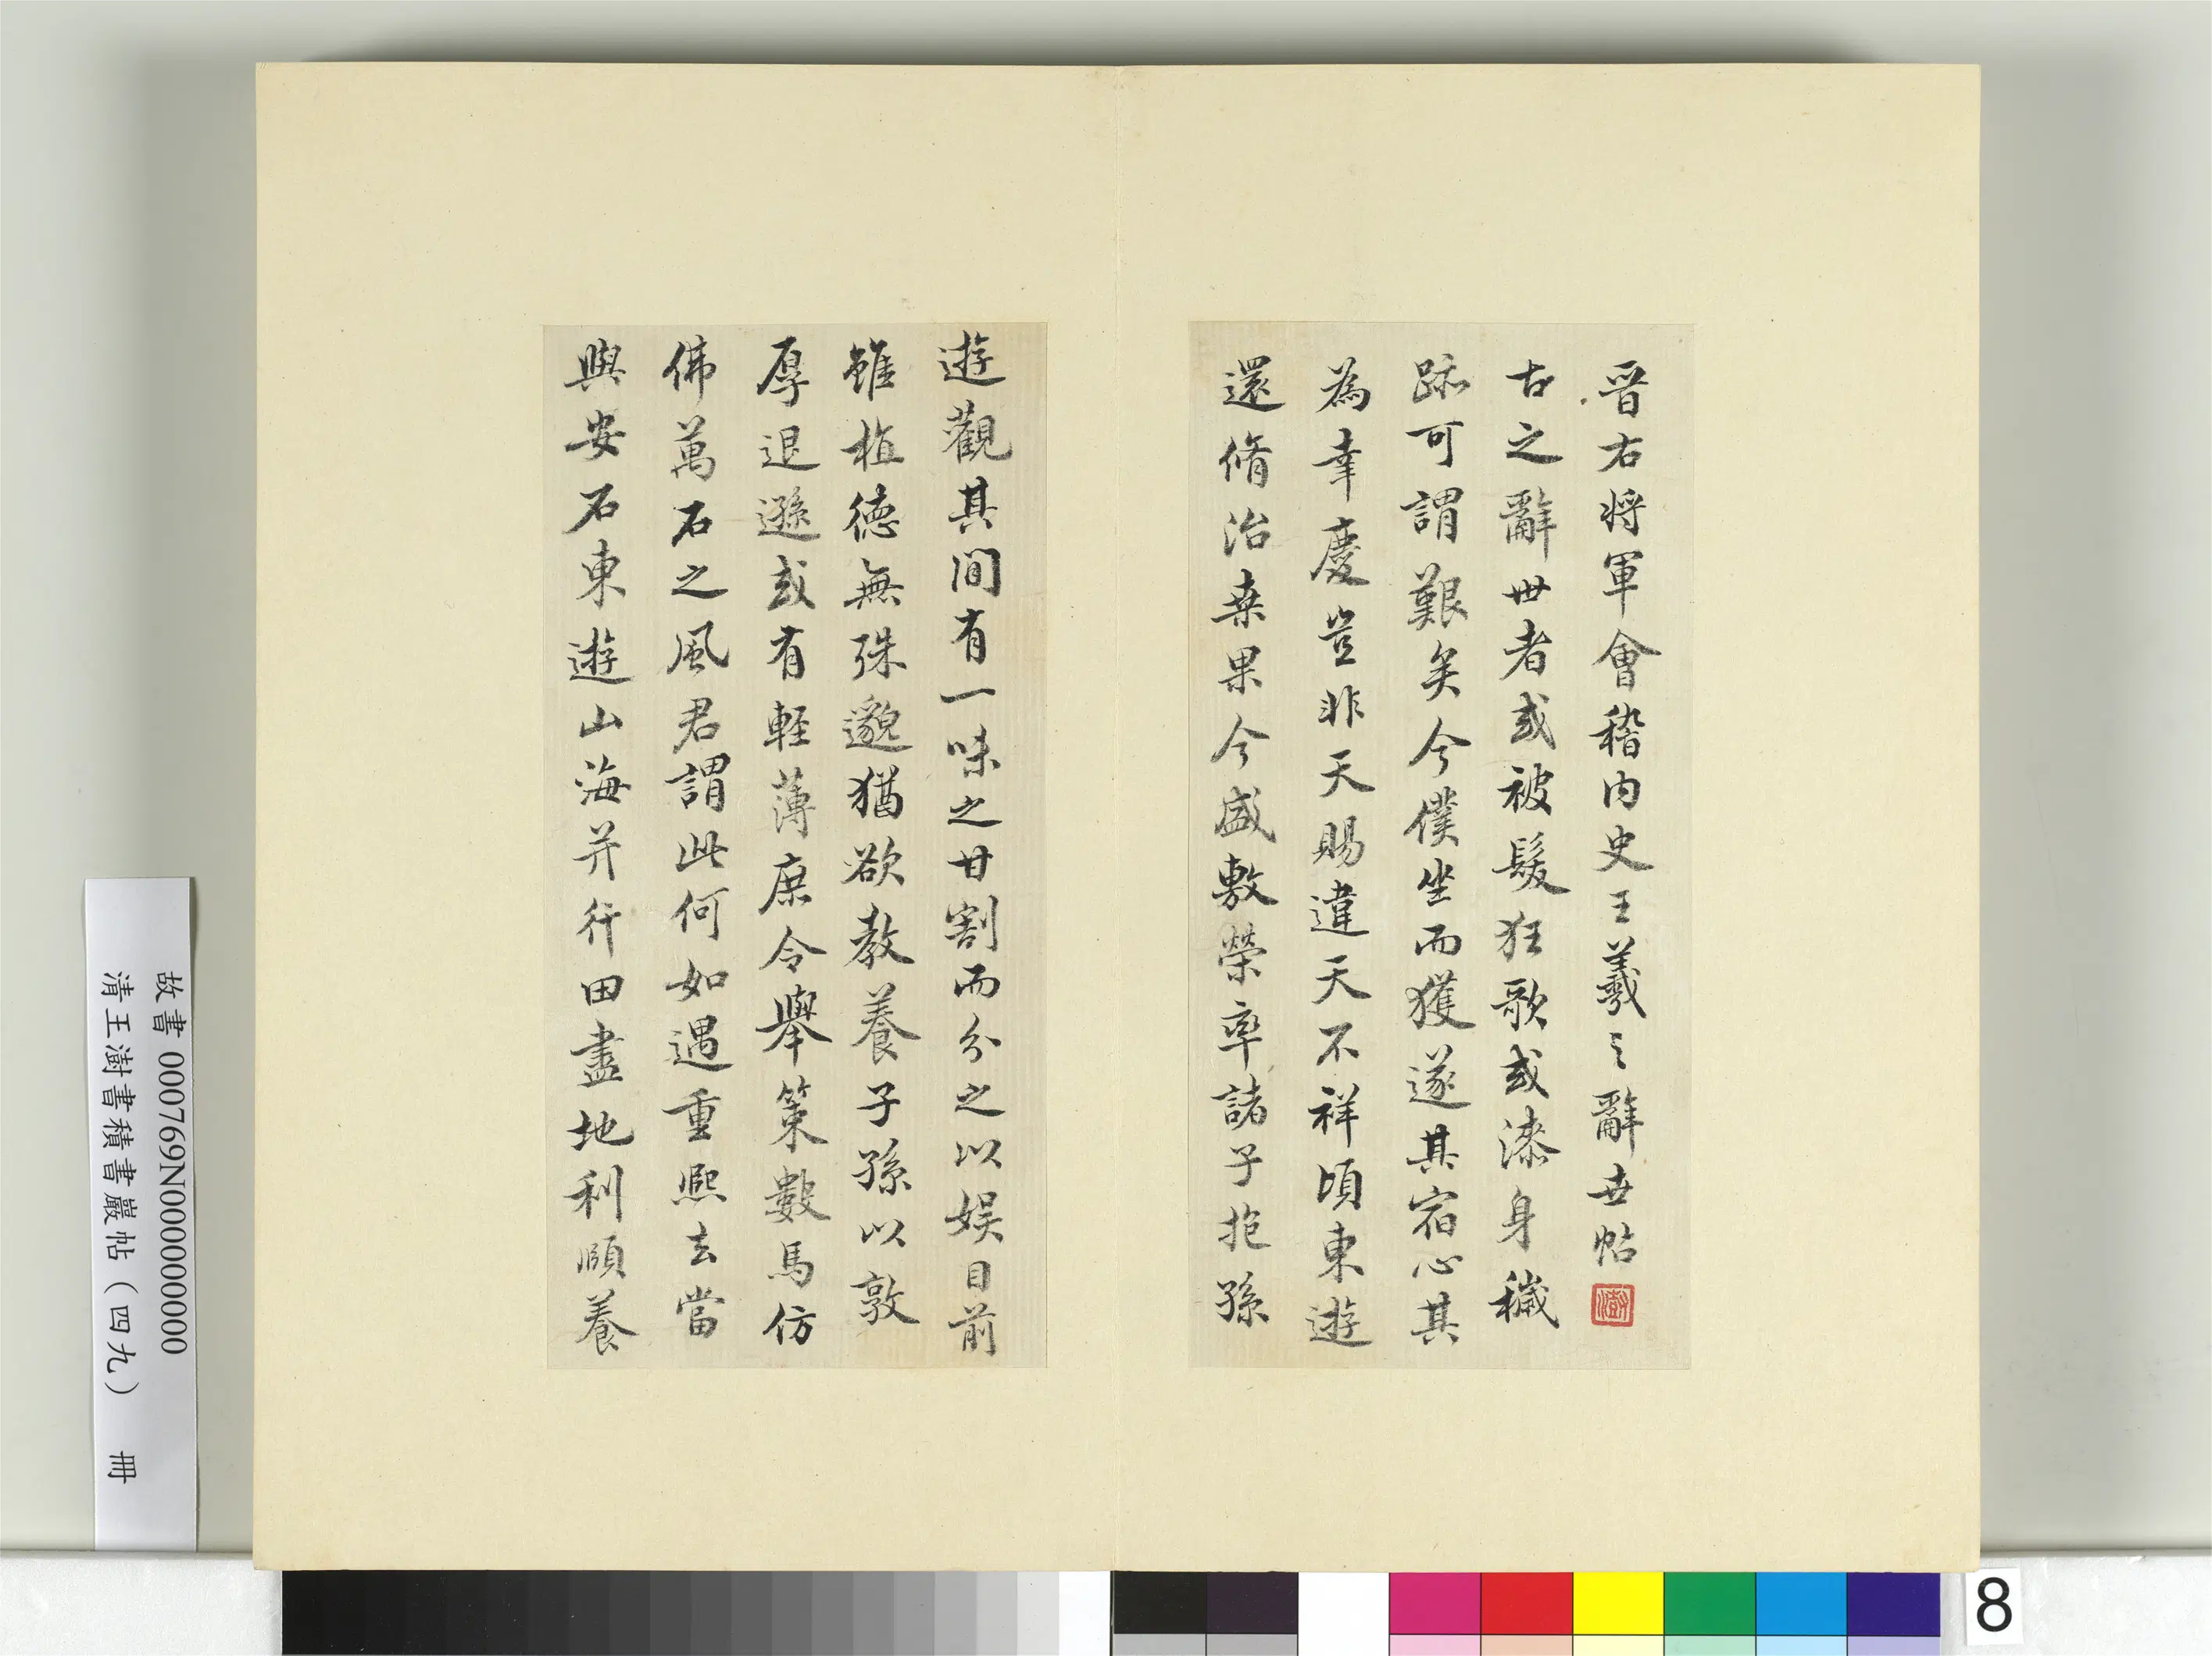 晉右将軍會稽内史王羲之辭世帖
澍
古之辭世者或被髮狂歌或漆身穢
跡可謂艱矣今僕坐而獲遂其宿心其
為幸慶豈非天賜違天不祥頃東遊
還脩治桒果今盛敷榮率諸子抱孫
遊觀其間有一味之甘割而分之以娱目前
雖植德無殊邈猶欲教養子孫以敦
厚退遜或有輕薄庶令舉策數馬仿
佛萬石之風君謂此何如遇重熙去當
與安石東遊山海并行田盡地利頤養
故書 000769N000000000
清王澍書積書巖帖（四九） 冊
8